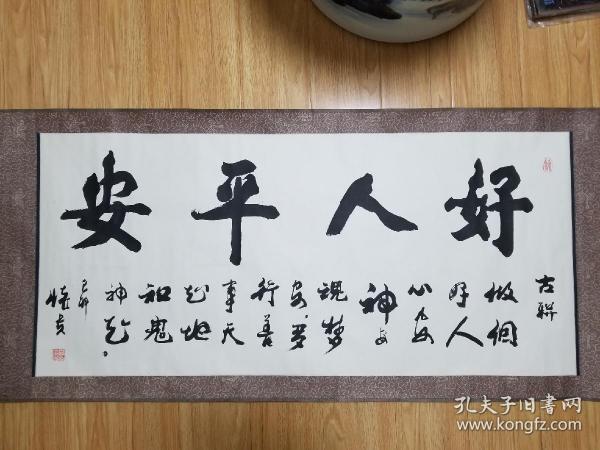 好人平安
古聯
做個
好人
心安
神
魂梦
安，多
行善
事天
地
鬼
神
己卯
孔夫子旧書网
www.kongfz.com